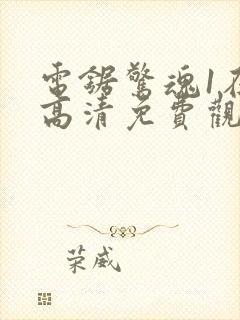 電鋸驚魂1在
高清免費觀
榮威